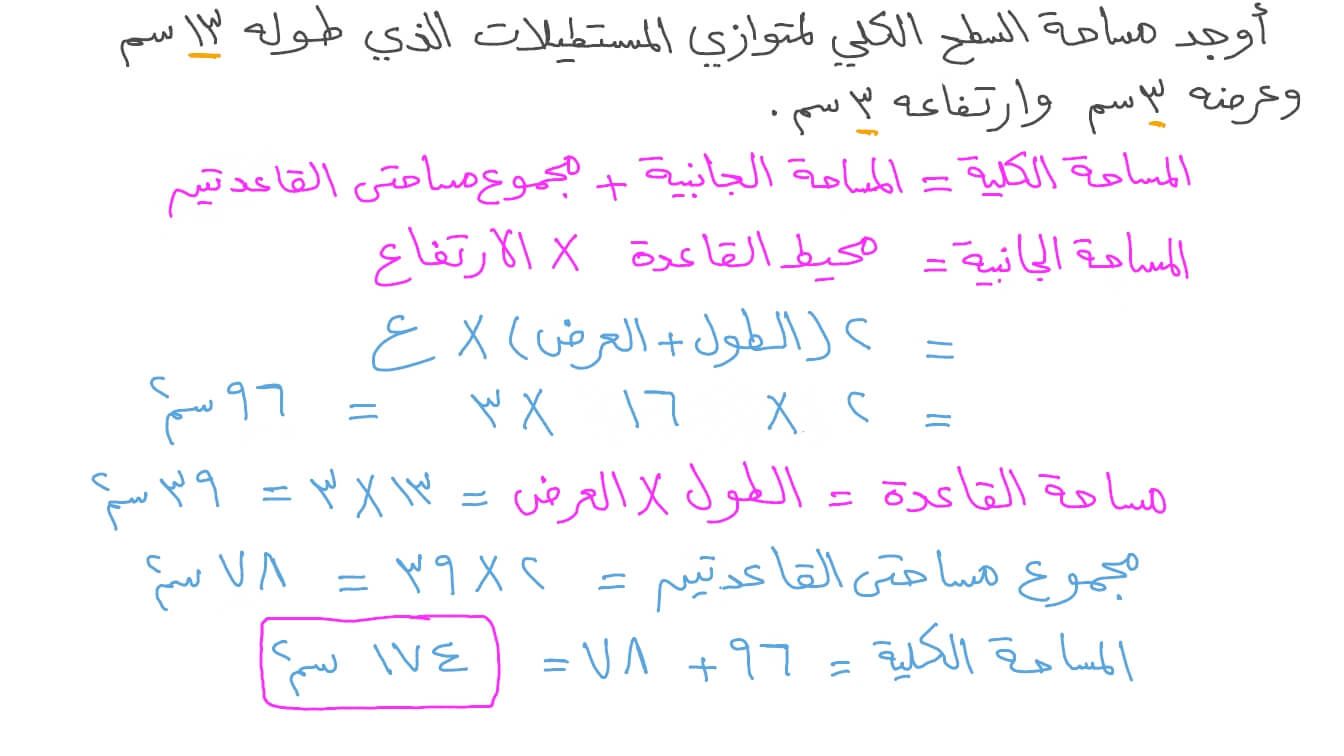 أوجد مساحة السطح الكلي لمتوازي المستطيلات الذي طوله ١٣ سم
وعرضه ٣ سم وارتفاعه ٣ سم .
المساحة الكلية = المساحة الجانبية + مجموع مساحتى القاعدتين
المساحة الجانبية = محيط القاعدة X الارتفاع
= ٢ (الطول + العرض) X ع
= ٢ X ١٦ X ٣ = ٩٦ سم٢
مساحة القاعدة = الطول X العرض = ١٣ X ٣ = ٣٩ سم٢
مجموع مساحتى القاعدتين = ٢ X ٣٩ = ٧٨ سم٢
المساحة الكلية = ٩٦ + ٧٨ = ١٧٤ سم٢